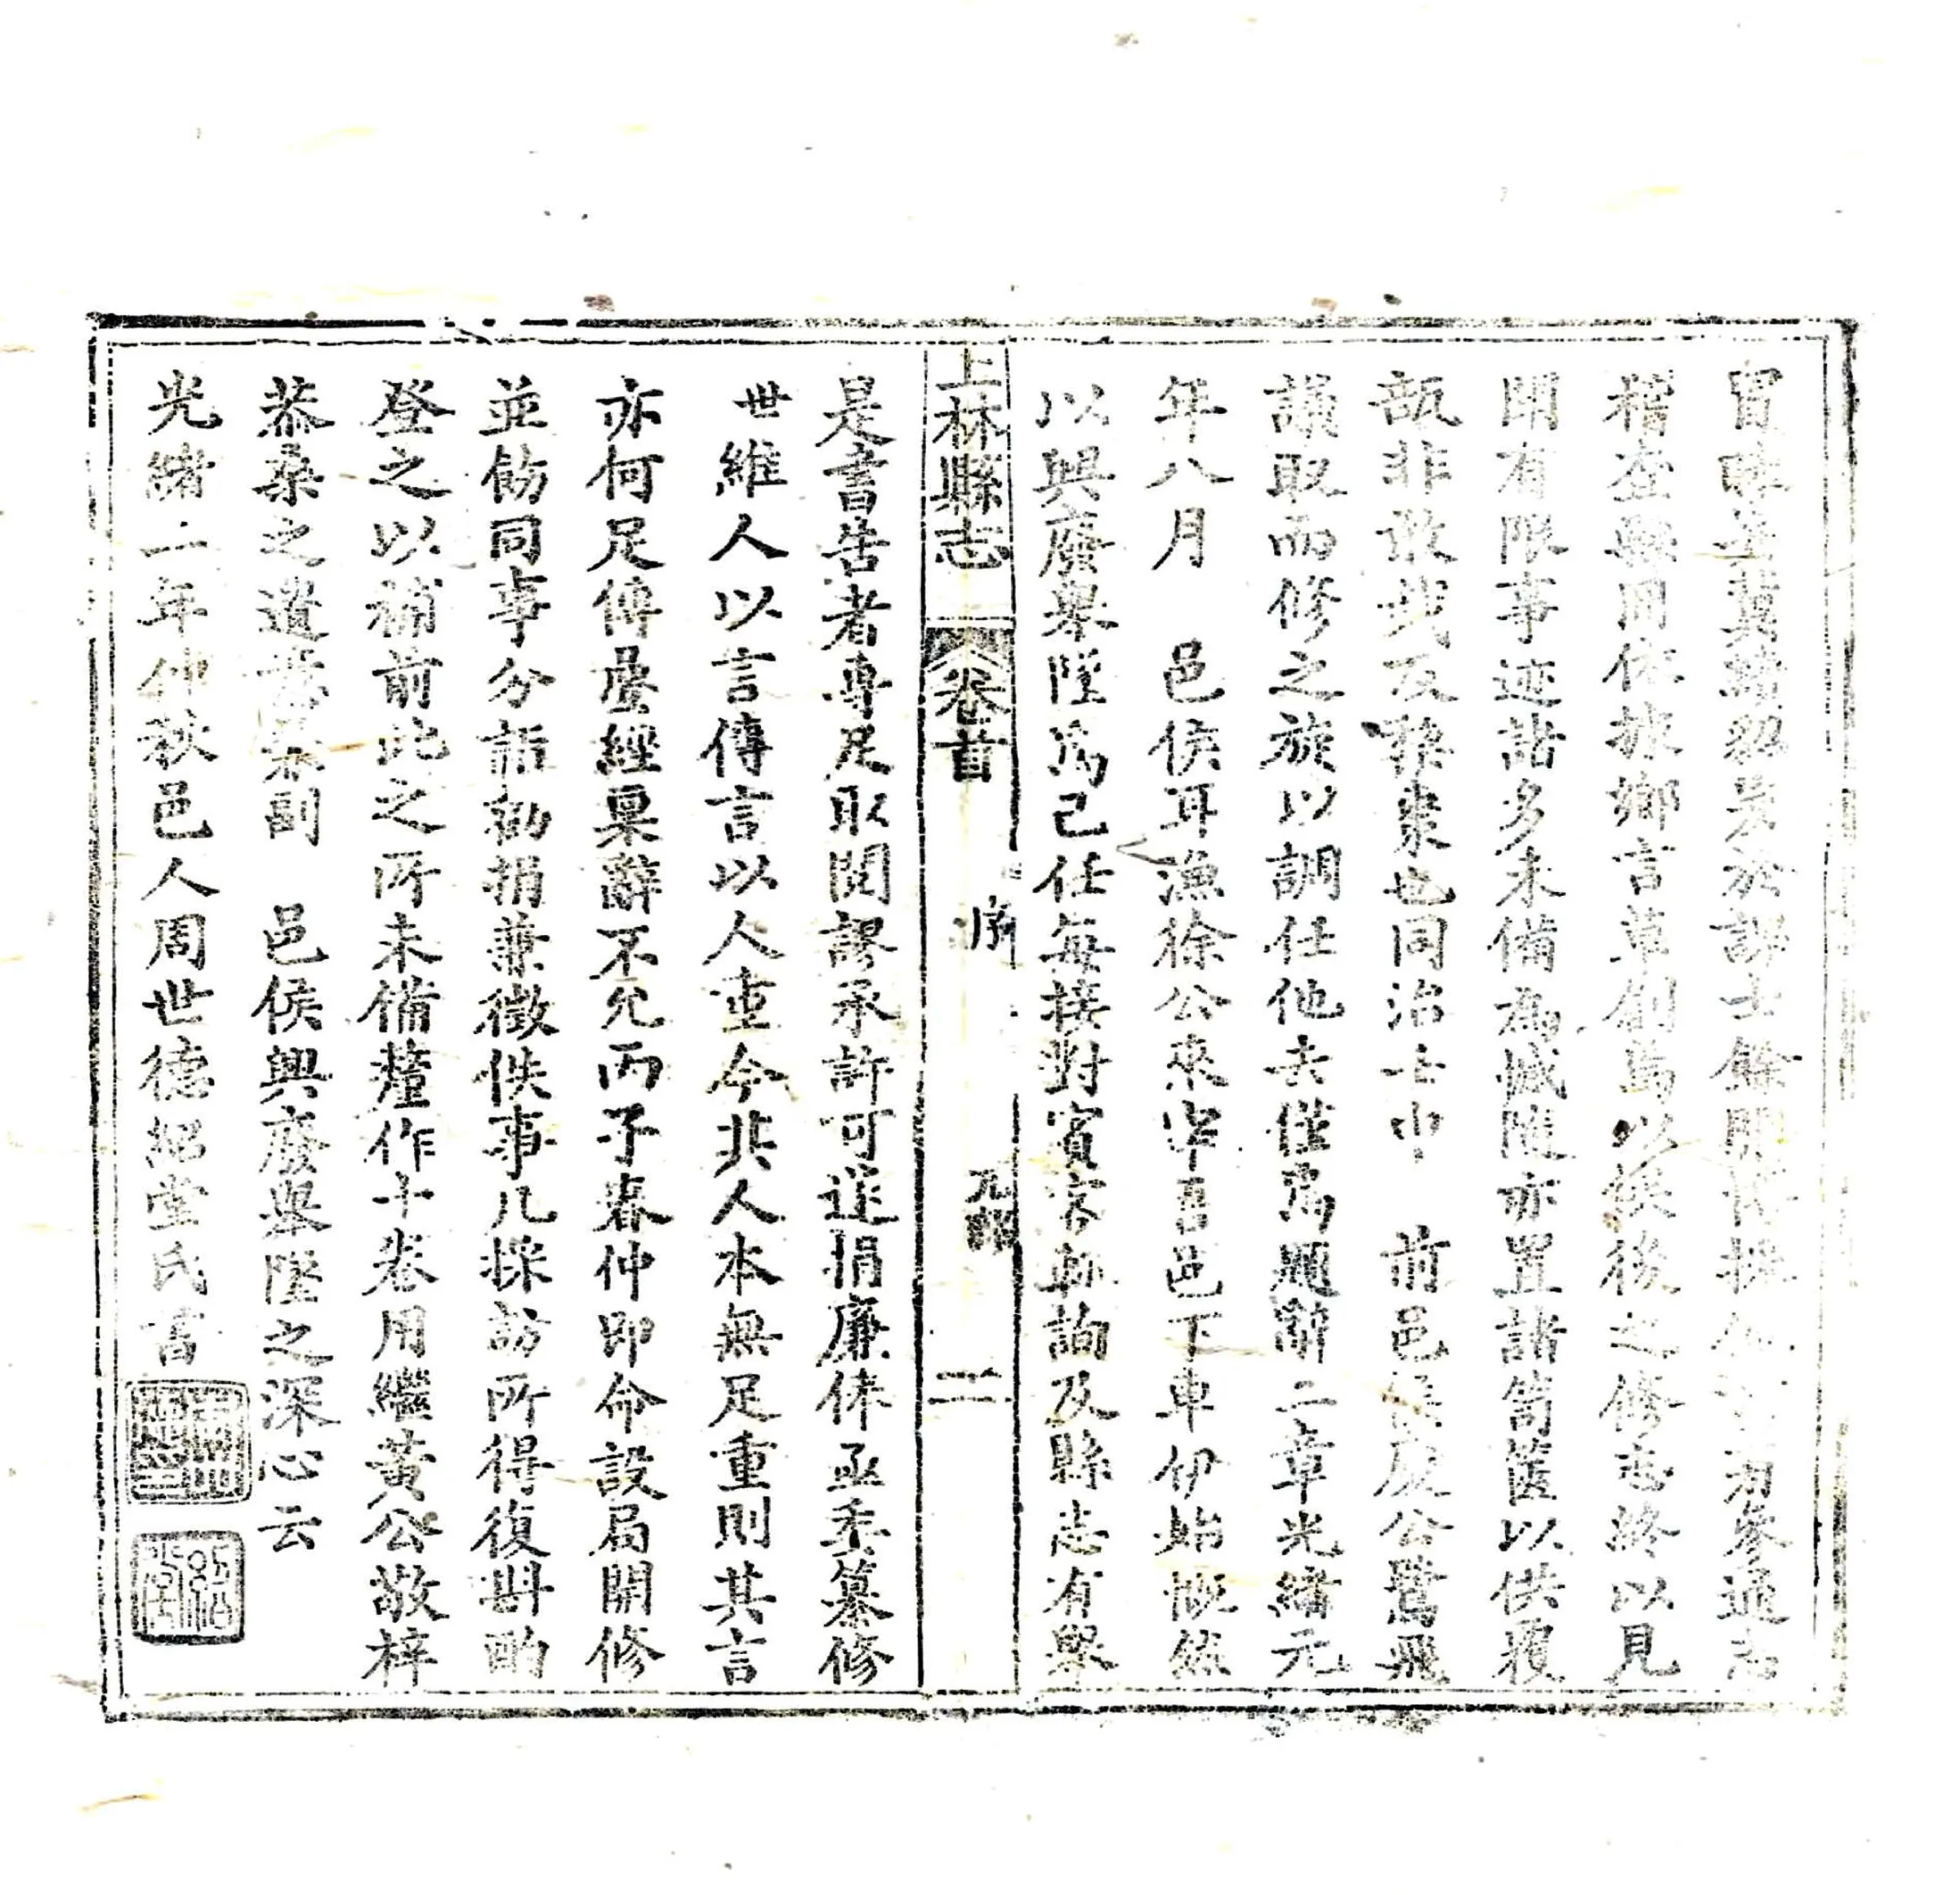 冒昧妄冀續貂爰於課士餘閒時披有參通志
稽查縣冊依據鄉言草創焉以俟後之修志終以見
聞有限事迹諸多未備為慽隨亦置諸笥篋以供覆
瓿非敢找及棃棗也同治士中　前邑侯公鷺飛
議取而修之旋以調任他去僅為題辭二章光緒元
年八月　邑侯耳漁徐公來宰吾邑下車伊始慨然
以興廢舉墜為己任每接對賓客輒詢及縣志有舉
上林縣志　卷首　序　二
是書告者專足取閱謬承許可遂捐廉俸亟委纂修
世維人以言傳言以人重今其人本無足重則其言
亦何足傳屢經稟辭不允丙子春仲即命設局開修
並飭同事分詣勸捐兼徵佚事凡採訪所得復斟酌
登之以補前此之所未備釐作十卷用繼黃公敬梓
恭桑之遺意副　邑侯興廢舉墜之深心云
光緒二年仲秋邑人周世德紹堂氏書